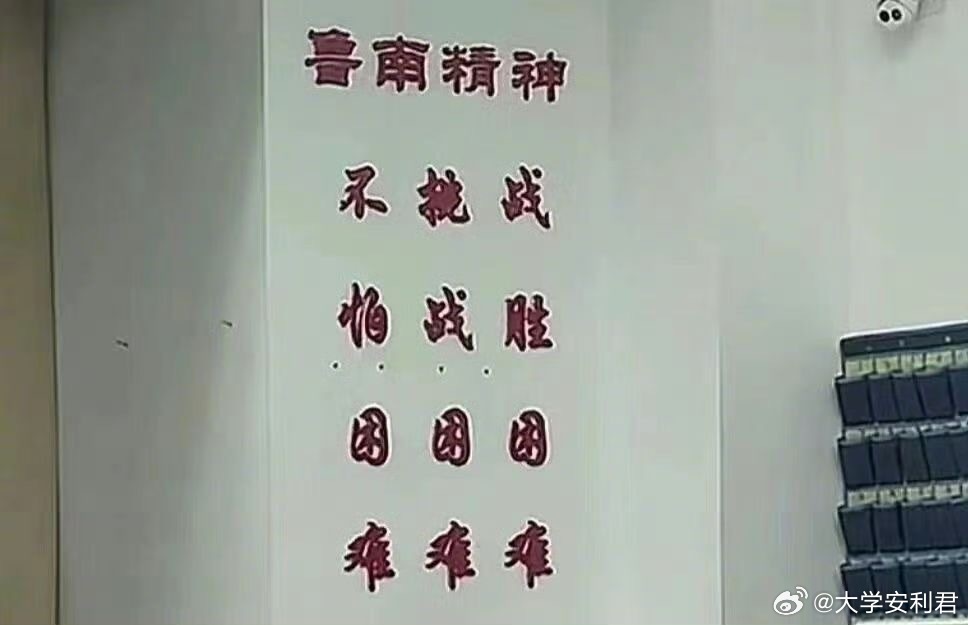 鲁南精神
不怕困难
挑战困难
战胜困难
@大学安利君